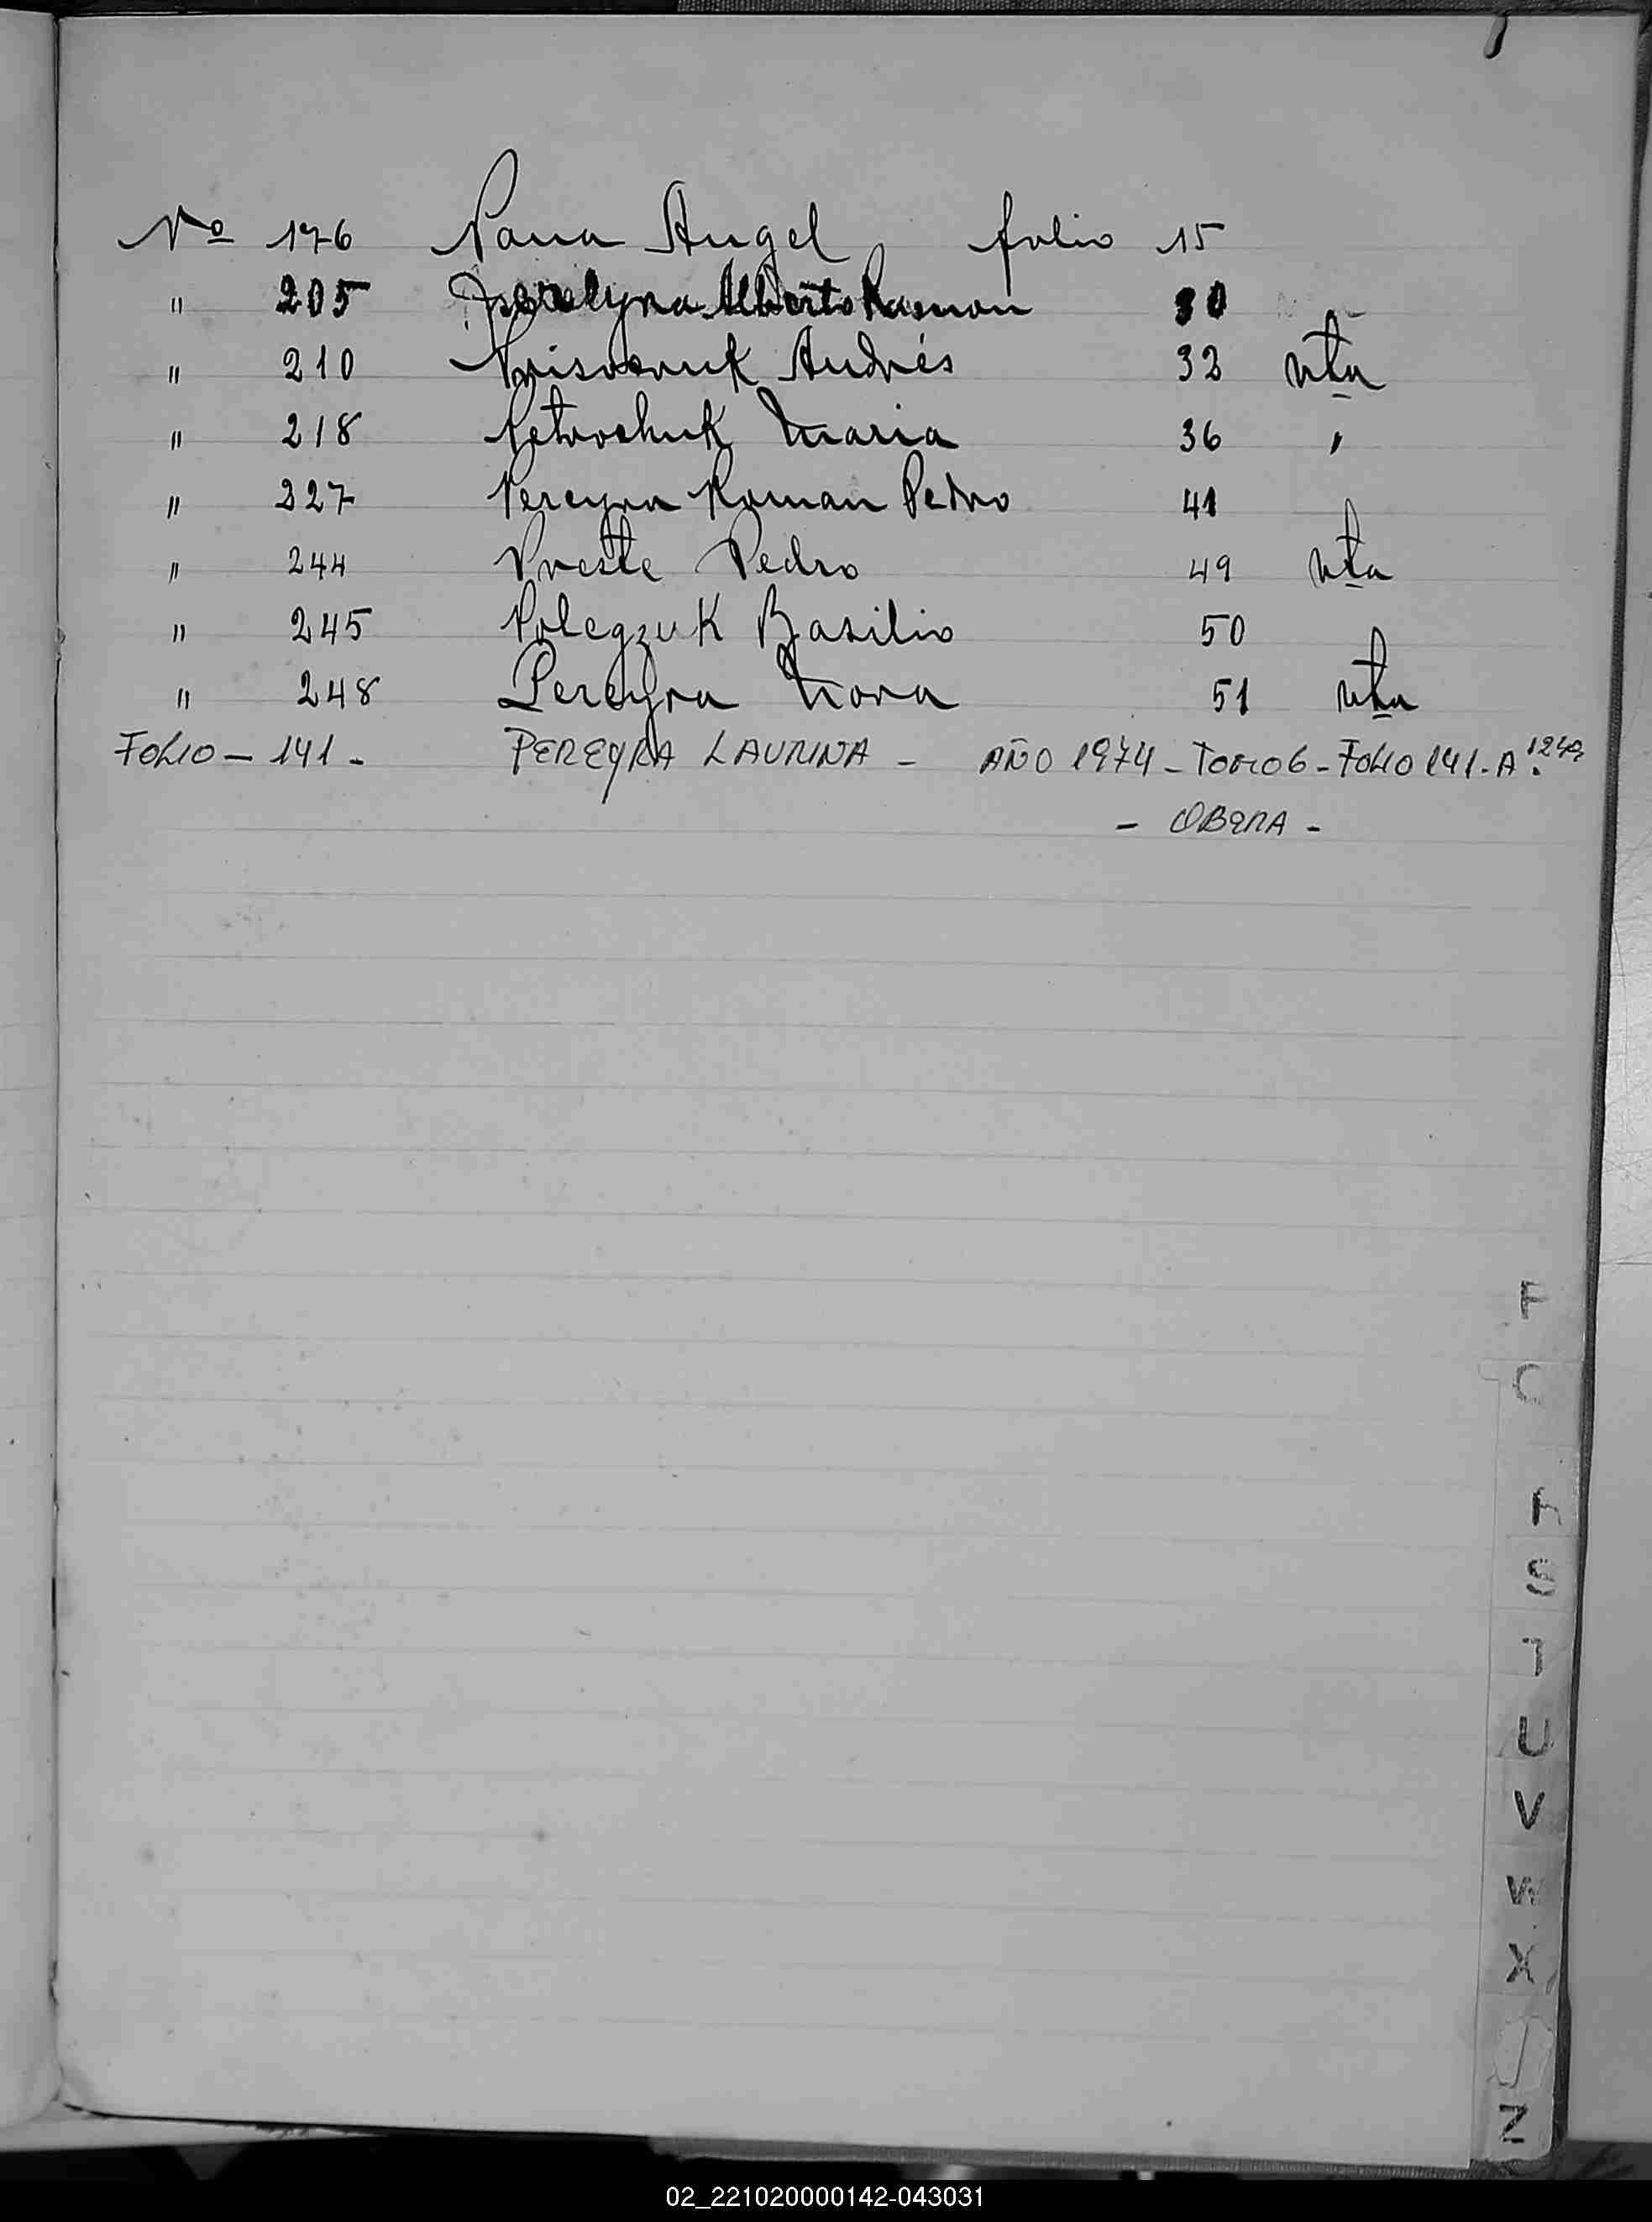 Nº 176 Pana Angel folio 15
" 205 Pereyra Alberto Ramon 30
" 210 Andrés 32 vta
" 218 Petrochuk Maria 36 "
" 227 Pereyra Roman Pedro 41
" 244 Preste Pedro 49 vta
" 245 Polegzuk Basilio 50
" 248 Pereyra Nora 51 vta
FOLIO - 141 - PEREYRA LAURINA - AÑO 1974 - TOMO 6 - FOLIO 141 - A.
- OBERA -
F
S
U
V
W
X
Z
02_221020000142-043031